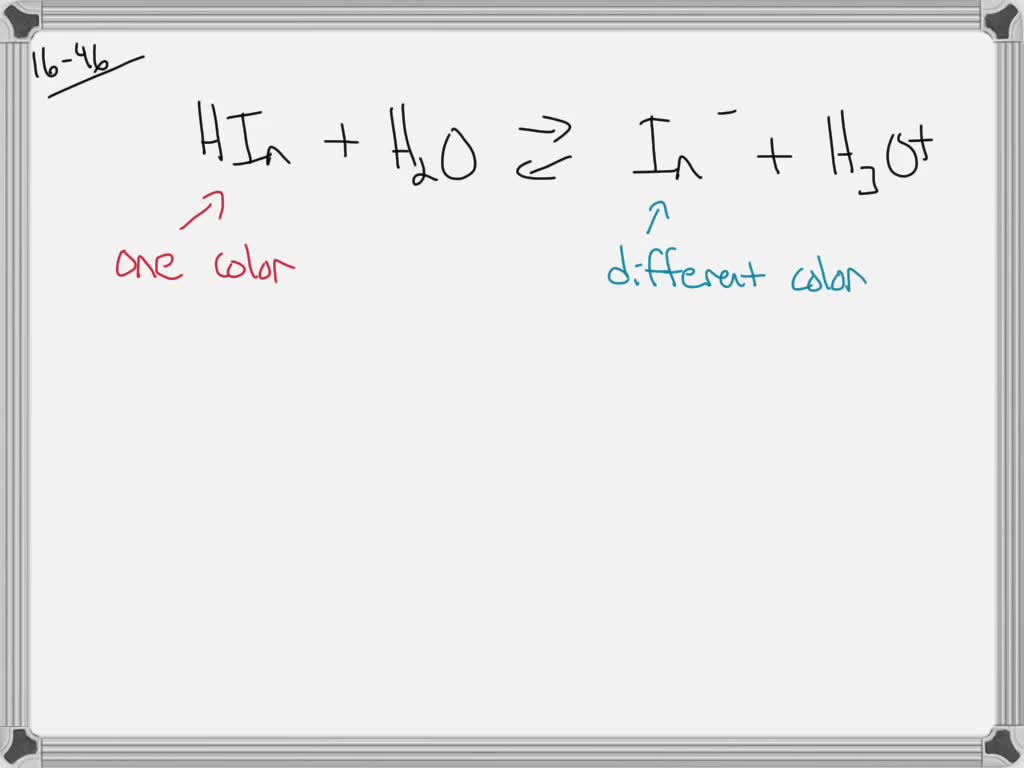 16-46
HIn + H₂O ⇌ In⁻ + H₃O⁺
one color
different color